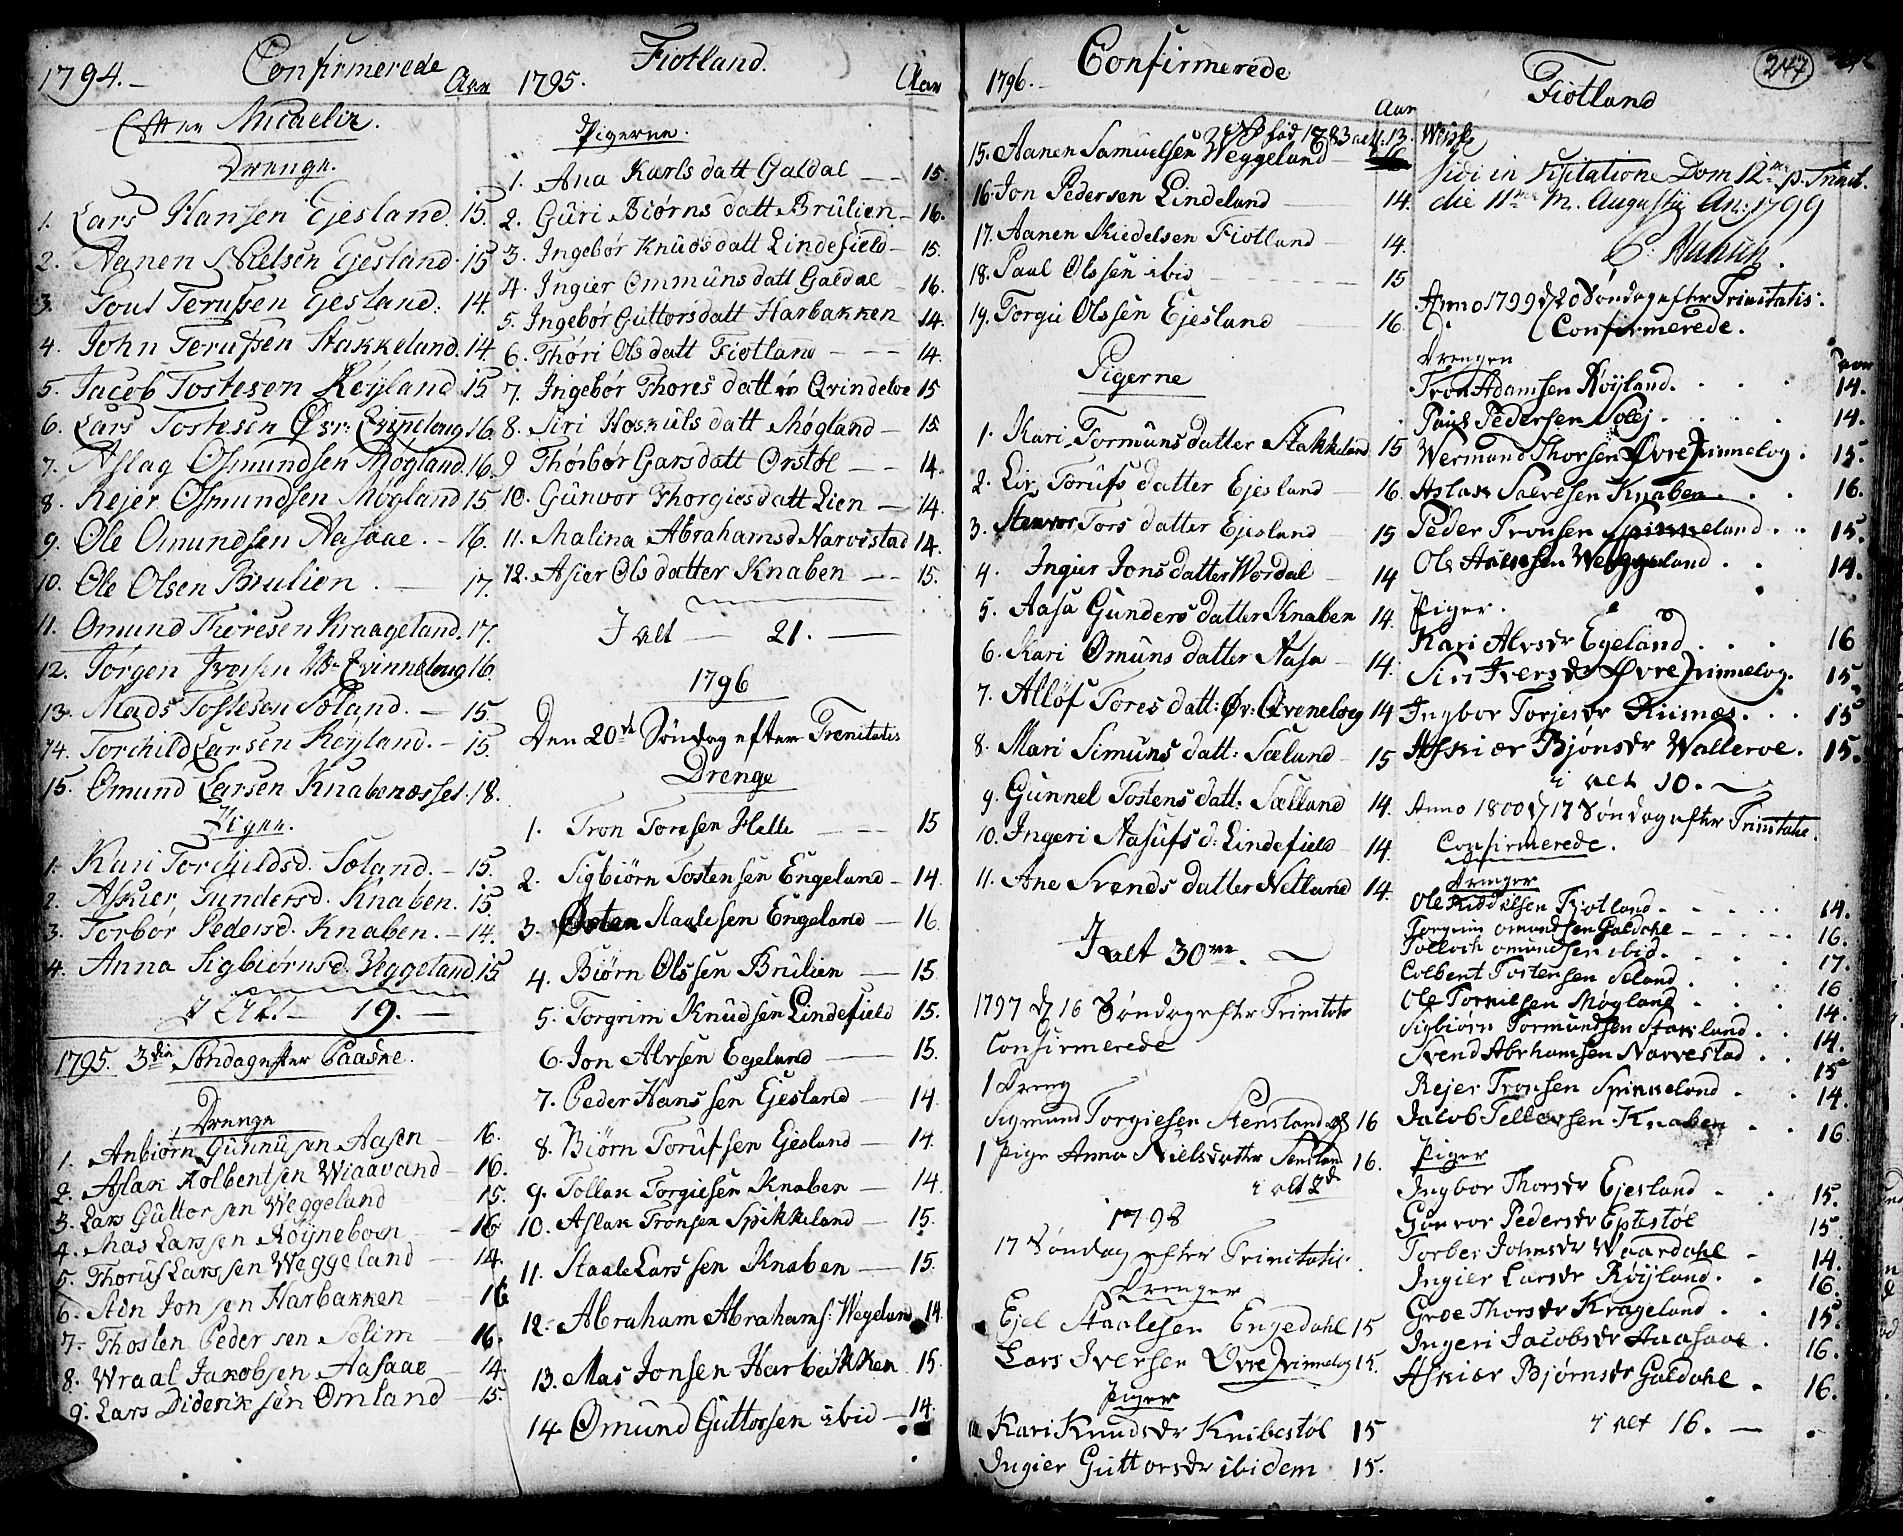 1794.- Confirmerede Aar
Efter Micaelis.
Drenge.
1. Lars Hansen Ejesland. 15.
2. Aanen Nielsen Ejesland. 15
3. Toul Terussen Ejesland. 14.
4. John Terussen Stakkeland. 14
5. Jacob Tostesen Røyland 15
6. Lars Tostesen Øvr: 16
7. Aslag Osmundsen Møgland. 16.
8. Rejer Osmundsen Møgland 15
9. Ole Omundsen Aasaae. - 16.
10. Ole Olsen Brulien. - 17.
11. Omund Thoresen Kraageland. 17.
12. Jørgen Iversen 16.
13. Mads Tostesen Soland. - 15.
14. Torchild Larsen Røyland. - 15.
15. Omund Larsen Knabenæsset. 18.
Piger.
1. Kari Torchildsd. Soland. - 15.
2. Askier Gundersd. Knaben. 15
3. Torbor Pedersd. Knaben. - 14.
4. Anna Sigbiørnsd. Veggeland. 15
I Alt - 19. -
1795. 3die Søndag efter Paaske.
Drenge
1. Anbiørn Gunnusen Aasen - 16.
2. Aslak Kolbentsen Wiaavand - 16.
3. Lars Guttorsen Weggeland 15.
4. Mas Larssen Røyneboen - 16
5. Thorus Larssen Weggeland - 14.
6. Aen Jonsen Harbakken - 16
7. Thosten Pedersen Solim - 16.
8. Wraal Jakobsen Aasaae - 14.
9. Lars Dideriksen Omland - 15.
1795. Fiotland. Aar
Pigerne.
1. Ana Karlsdatt Galdal - 15.
2. Guri Biørnsdatt Brulien - 16.
3. Ingebør Knudsdatt Lindefield - 15.
4. Ingier Ommunsdatt Galdal - 16.
5. Ingebør Guttorsdatt Harbakken 14.
6. Thori Olsdatt Fiotland - 14.
7. Ingebør Thoresdatt Qvindeloe 15
8. Siri Hoskulsdatt Møgland - 15
9 Thorbør Garsdatt Ørstøl - 14.
10. Gunvor Thorgiesdatt Lien - 14.
11. Malina Abrahamsd Narvestad 14.
12. Asier Olsdatter Knaben - 15.
I alt - 21. -
1796
Den 20de Søndag efter Trenitatis
Drenge
1. Tron Toresen Helle - 15
2. Sigbiørn Tostensen Engeland - 14.
3. Østen Staalesen Engeland - 16.
4. Biørn Olssen Brulien - 15
5. Torgrim Knudsen Lindefield 15.
6. Jon Alvsen Egeland - 15.
7. Peder Hanssen Ejesland - 14.
8. Biørn Torufsen Ejesland - 14.
9. Tollak Torgiesen Knaben - 14
10. Aslak Tronsen Spikkeland - 15.
11. Staale Larssen Knaben - 15.
12. Abraham Abrahams: Wegeland 14
13. Mas Jonsen Harbakken 15.
14 Omund Guttorsen ibid - 14.
1796.- Confirmerede Aar
15. Aanen Samuelsen Weggeland fød 1783 13.
16. Jon Pedersen Lindeland - 14.
17. Aanen Kiedelsen Fiotland - 14.
18. Paul Olssen ibid - 15
19. Torgie Olssen Ejesland - 16.
Pigerne
1. Kari Tormunsdatter Stakkeland 15
2. Liv Torufsdatter Ejesland - 16.
3. Stenvor Torsdatter Ejesland - 15
4. Ingier Jonsdatter Wordal - 14
5. Aasa Gundersdatter Knaben 14.
6. Kari Omunsdatter Aasa - 14.
7. Allof Toresdatt: Øv: Qveneloeg 14
8. Mari Simunsdatt: Sæland - 15
9. Gunnel Tostensdatt: Sælland 14.
10. Ingeri Aasufsd: Lindefield - 14.
11. Ane Svendsdatter Netland 14.
I alt 30ve. -
1797 d. 16 Søndag efter Trinitatis
Confirmerede
1 Dreng
Sigmund Torgiesen Stensland og 16
1 Pige Anna Nielsdatter 16.
i alt 2de
1798
17 Søndag efter Trinitatis.
Drenger
Ejel Staalesen Engedahl 15
Lars Iversen Øvre Qvinnelog 15.
Piger
Kari Knudsdr Knibestøl 15
Ingier Guttorsdr ibidem 15.
Fiotland
247
Vidi in Visitatione Dom 12me p. Trinit.
die 11me m. Augusti An: 1799
Anno 1799 d. 20 Søndag efter Trinitatis.
Confirmerede.
Drenger aar
Tron Adamsen Røyland. 14.
Paul Pedersen Solej. 14.
Wermund Thorsen Øvre Qvinnelog. 15.
Aslak Salvesen Knaben. 16.
Peder Tronsen Spikkeland. 15.
Ole Weggeland 14.
Piger.
Kari Alvsdr Egeland. 16
Siri Iversdr Øvre Qvinnelog. 15.
Ingbor Torjesdr Risnæs. 15
Askiær Bjønsdr Watleroe. 15.
i alt 10. -
Anno 1800 d. 17 Søndag efter Trinitatis.
Confirmerede.
Drenger
Ole Kiddelsen Fjotland 14.
Torgrim Omundsen Galdahl 16.
Tolleih Omundsen ibid. 17.
Colbent Tostensen Seland 16
Ole Tornilsen Møgland 14.
Sigbiørn Tormundsen Stakland 14.
Svend Abrhamsen Narvestad 15
Rejer Tronsen Spikkeland 14.
Jacob Tellevsen Knaben 16.
Piger
Ingbor Thorsdr Ejesland 15.
Gunvor Pedersdr Eptestøl 15.
Torber Johnsdr Waardahl 14.
Ingier Larsdr Røyland. 16.
Groe Thorsdr Krageland 15.
Ingeri Jacobsdr Aaasaae 16.
Askiær Bjørnsdr Galdahl 16.
i alt 16. -